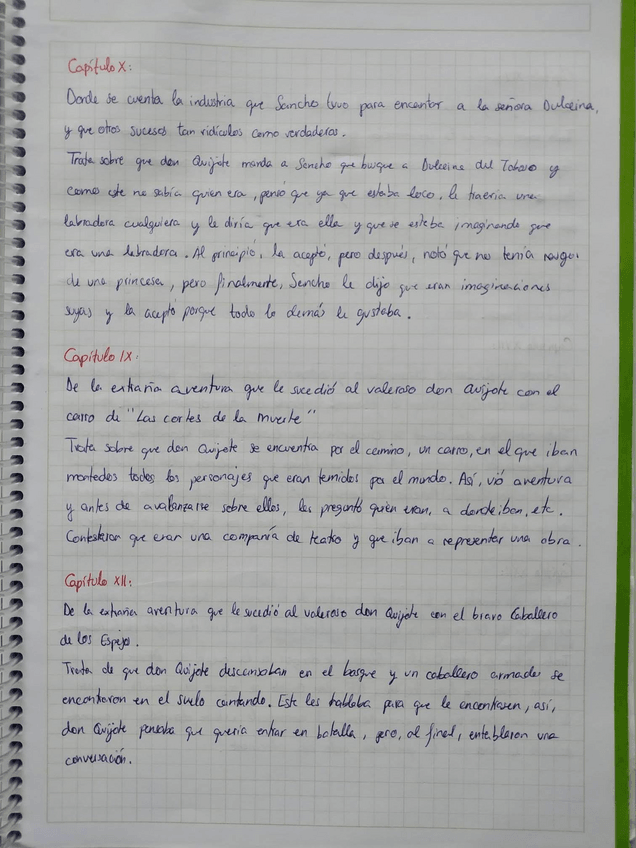 Capítulo X:
Donde se cuenta la industria que Sancho tuvo para encantar a la señora Dulcinea,
y que otros sucesos tan ridículos como verdaderos.
Trata sobre que don Quijote manda a Sancho que busque a Dulcinea del Toboso y
como este no sabía quien era, pensó que ya que estaba loco, le traería una
labradora cualquiera y le diría que era ella y que se estaba imaginando que
era una labradora. Al principió, la aceptó, pero después, notó que no tenía rasgos
de una princesa, pero finalmente, Sancho le dijo que eran imaginaciones
suyas y la aceptó porque todo lo demás le gustaba.
Capítulo IX:
De la extraña aventura que le sucedió al valeroso don Quijote con el
carro de "Las cortes de la Muerte"
Trata sobre que don Quijote se encuentra por el camino, un carro, en el que iban
montados todos los personajes que eran temidos por el mundo. Así, vió aventura
y antes de avalanzarse sobre ellos, les preguntó quien eran, a donde iban, etc.
Contestaron que eran una compañía de teatro y que iban a representar una obra.
Capítulo XII:
De la extraña aventura que le sucedió al valeroso don Quijote con el bravo Caballero
de los Espejos.
Trata de que don Quijote descansaban en el bosque y un caballero armado se
encontraron en el suelo cantando. Este les hablaba para que le encontrasen, así,
don Quijote pensaba que quería entrar en batalla, pero, al final, entablaron una
conversación.